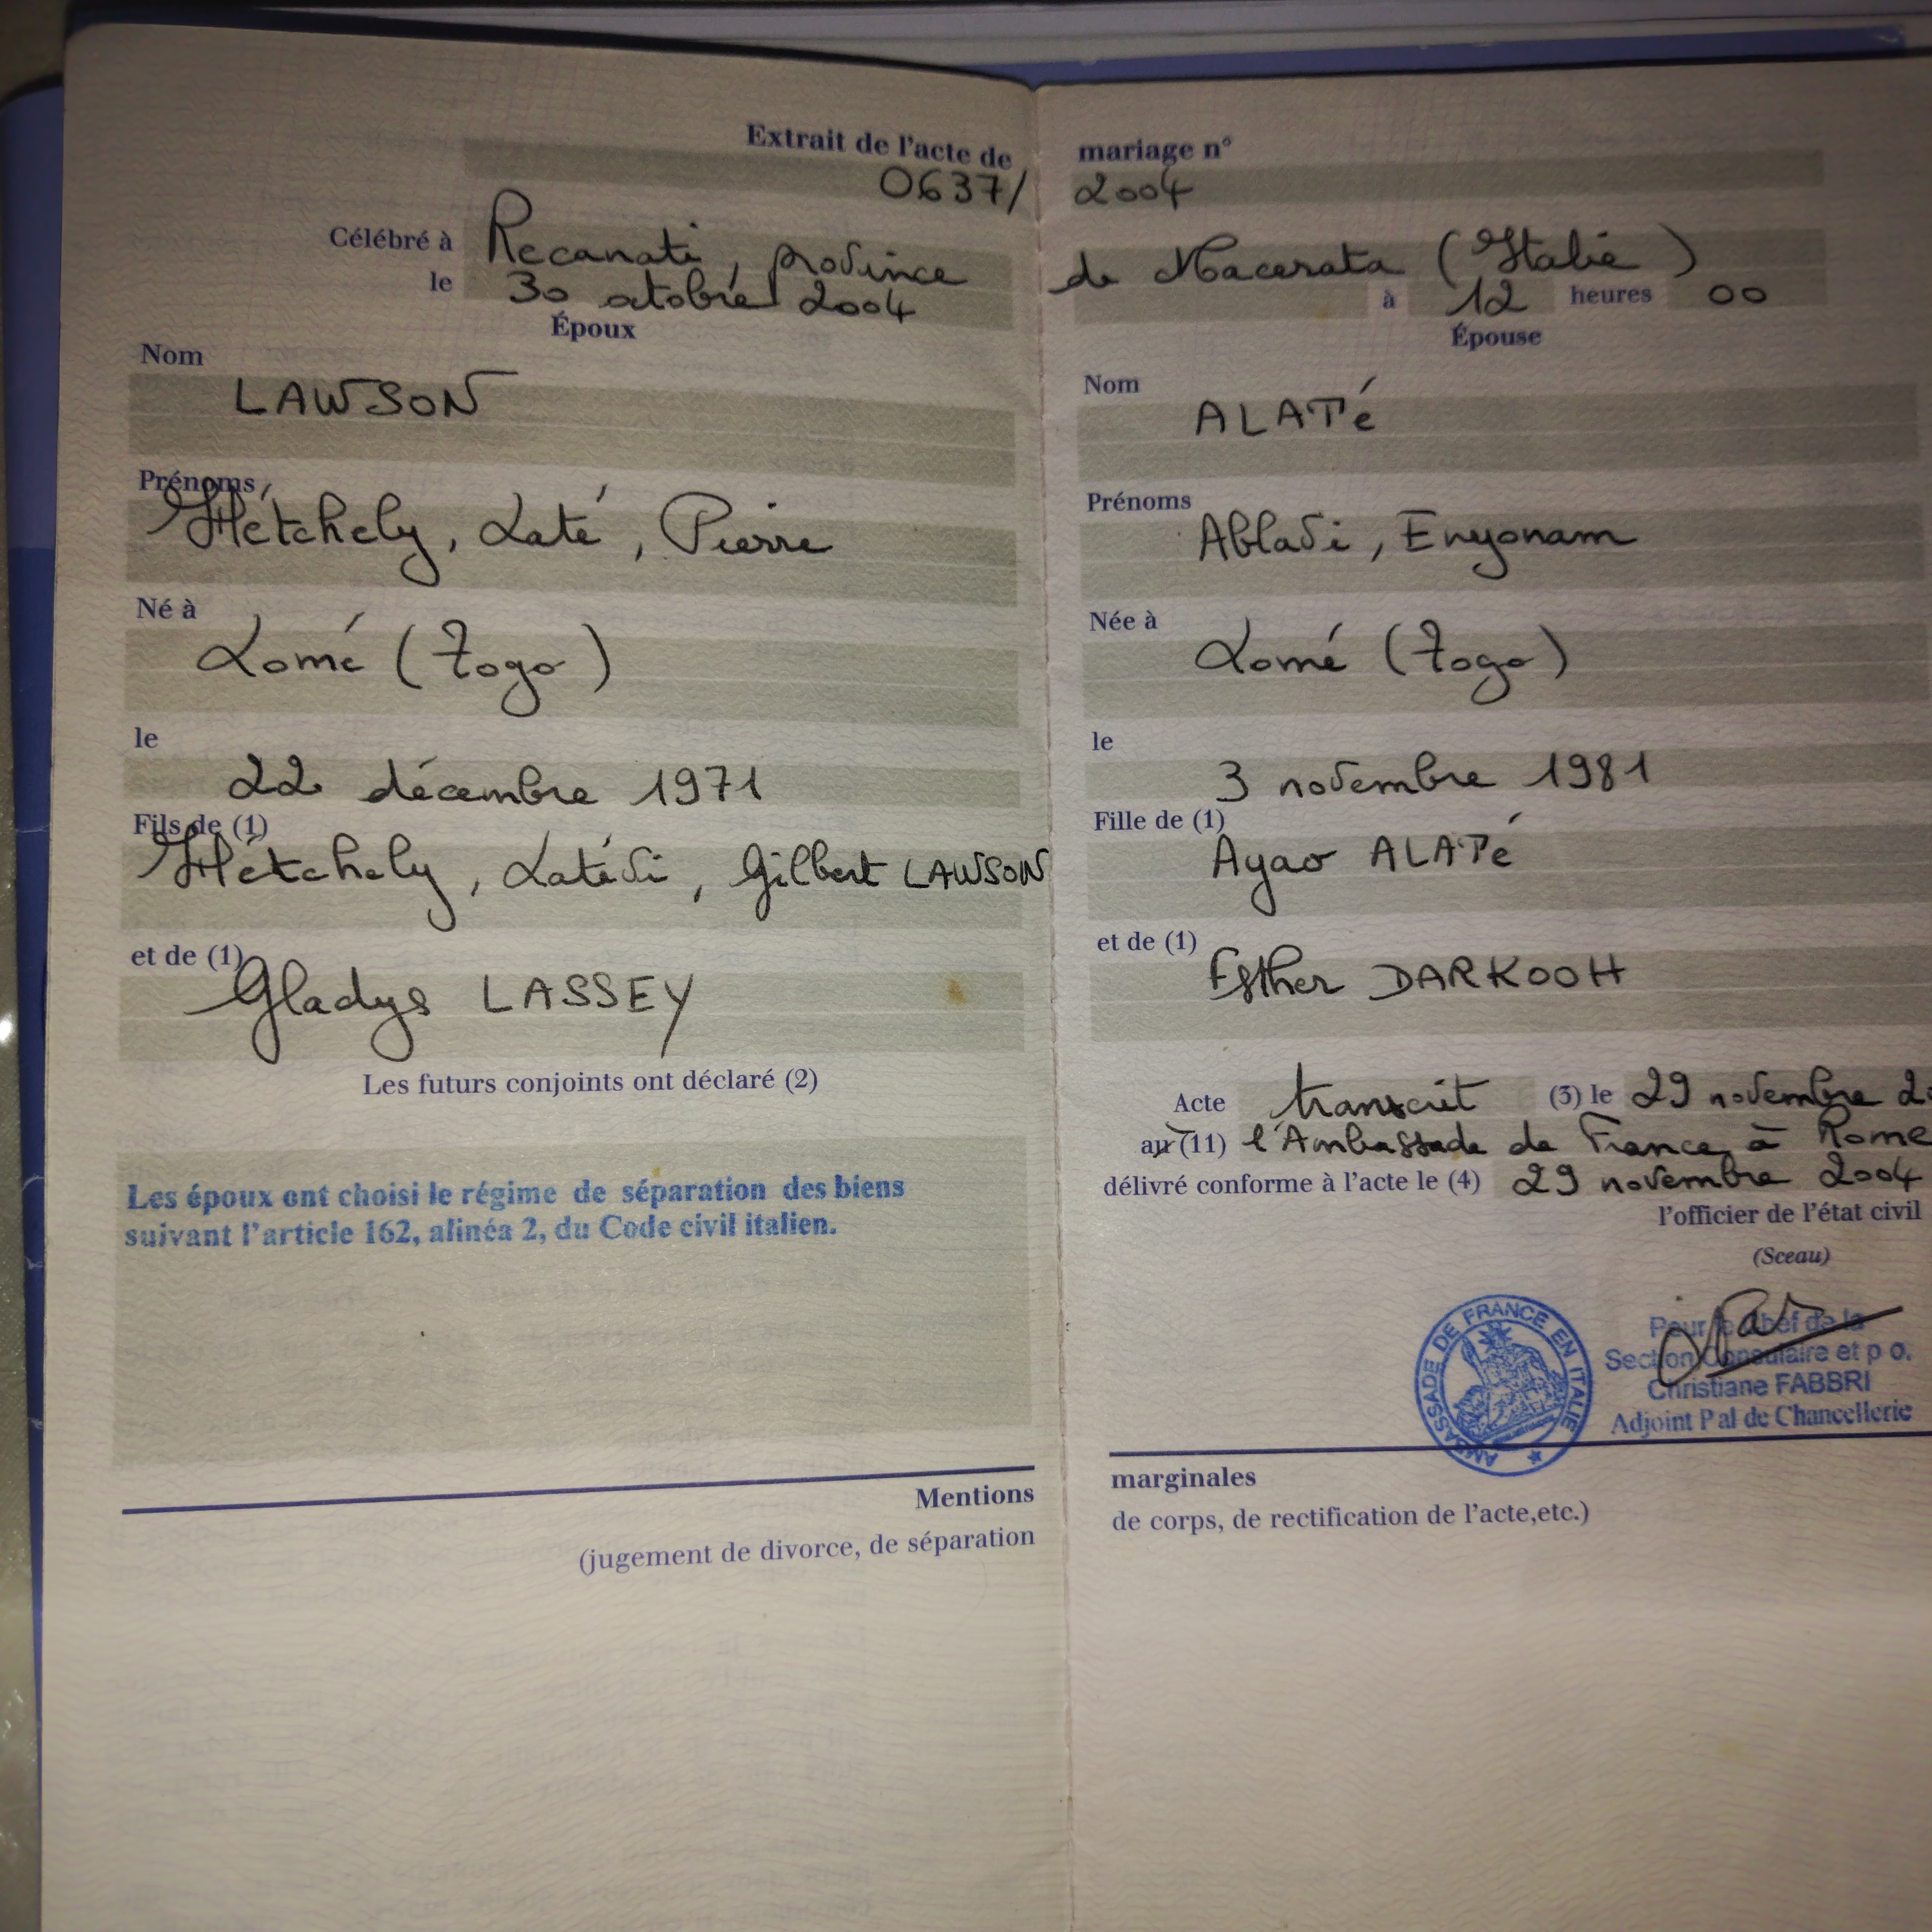 Extrait de l'acte de mariage n°
0637/ 2004
Célébré à Recanati, province de Macerata (Italie)
le 30 octobre 2004 à 12 heures 00
Époux
Nom
LAWSON
Prénoms
Hétchely, Laté, Pierre
Né à
Lomé (Togo)
le
22 décembre 1971
Fils de (1)
Hétchely, Latévi, Gilbert LAWSON
et de (1)
Gladys LASSEY
Les futurs conjoints ont déclaré (2)
Les époux ont choisi le régime de séparation des biens
suivant l'article 162, alinéa 2, du Code civil italien.
Épouse
Nom
ALATÉ
Prénoms
Ablavi, Enyonam
Née à
Lomé (Togo)
le
3 novembre 1981
Fille de (1)
Ayao ALATÉ
et de (1)
Esther DARKOOH
Acte transcrit (3) le 29 novembre
au (11) l'Ambassade de France à Rome
délivré conforme à l'acte le (4) 29 novembre 2004
l'officier de l'état civil
(Sceau)
AMBASSADE DE FRANCE EN ITALIE
Pour le Chef de la
Section Consulaire et p o.
Christiane FABBRI
Adjoint Pal de Chancellerie
Mentions marginales
(jugement de divorce, de séparation de corps, de rectification de l'acte,etc.)